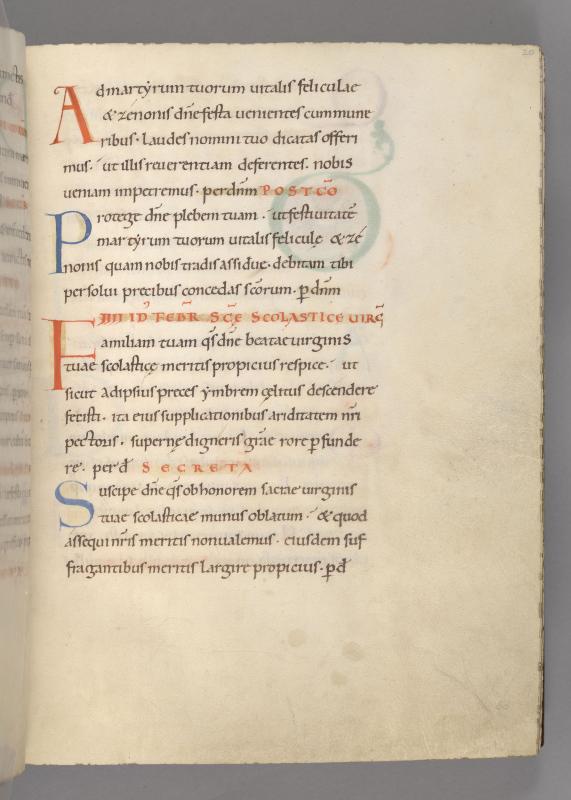 20
Admartyrum tuorum vitalis feliculae
& zenonis dn̄e festa venientes cummune
ribus · laudes nomini tuo dicatas offeri
mus · ut illis reverentiam deferentes · nobis
veniam impetremus · perdn̄m POSTCŌ
Protege dn̄e plebem tuam · ut festivitatē
martyrum tuorum vitalis felicule & ze
nonis quam nobis tradis assidue · debitam tibi
persolvi precibus concedas sc̄orum · ꝑ dn̄m
IIII ID FEBR̄ SC̄E SCOLASTICE VIRḠ
Familiam tuam qs̄ dn̄e beatae virginis
tuae scolasticę meritis propicius respice · ut
sicut adipsius preces ymbrem cęlitus descendere
fecisti · ita eius supplicationibus ariditatem nr̄i
pectoris · supernę digneris gr̄ae rore ꝑfunde
re · per đ SECRETA
Suscipe dn̄e qs̄ ob honorem sacrae virginis
tuae scolasticae munus oblatum · & quod
assequi nr̄is meritis non valemus · eiusdem suf
fragantibus meritis largire propicius · ꝑ đ